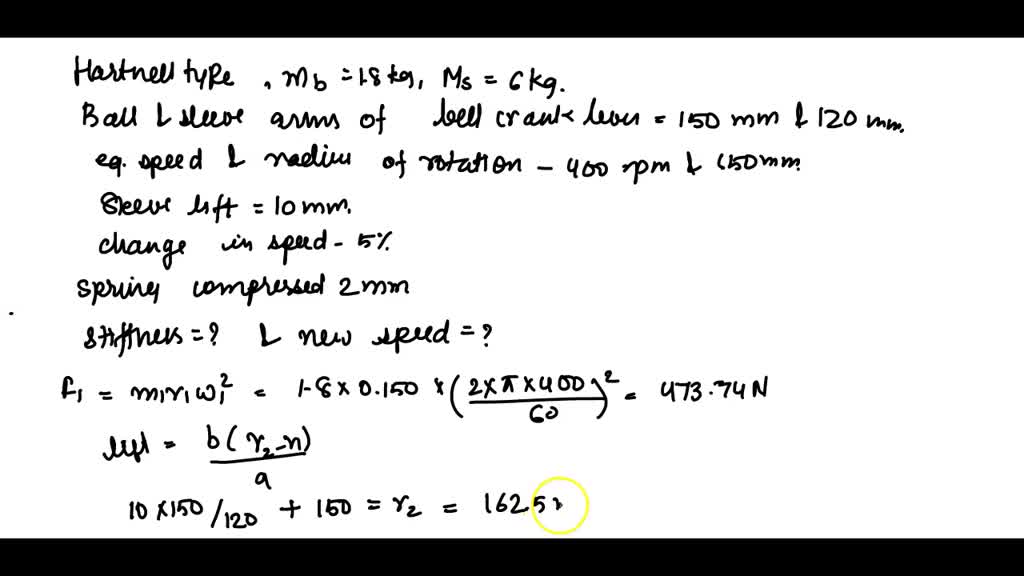 Hartnell type, mb = 1.8 kg, Ms = 6 kg.
Ball & sleeve arms of bell crank lever = 150 mm & 120 mm.
eq. speed & radius of rotation - 400 rpm & 150 mm
Sleeve lift = 10 mm.
change in speed - 5%
spring compressed 2 mm
stiffness = ? & new speed = ?
F₁ = m₁r₁ω₁² = 1.8 × 0.150 × (2 × π × 400 / 60)² = 473.74 N
lift = b(r₂-r₁) / a
10 × 150 / 120 + 150 = r₂ = 162.5